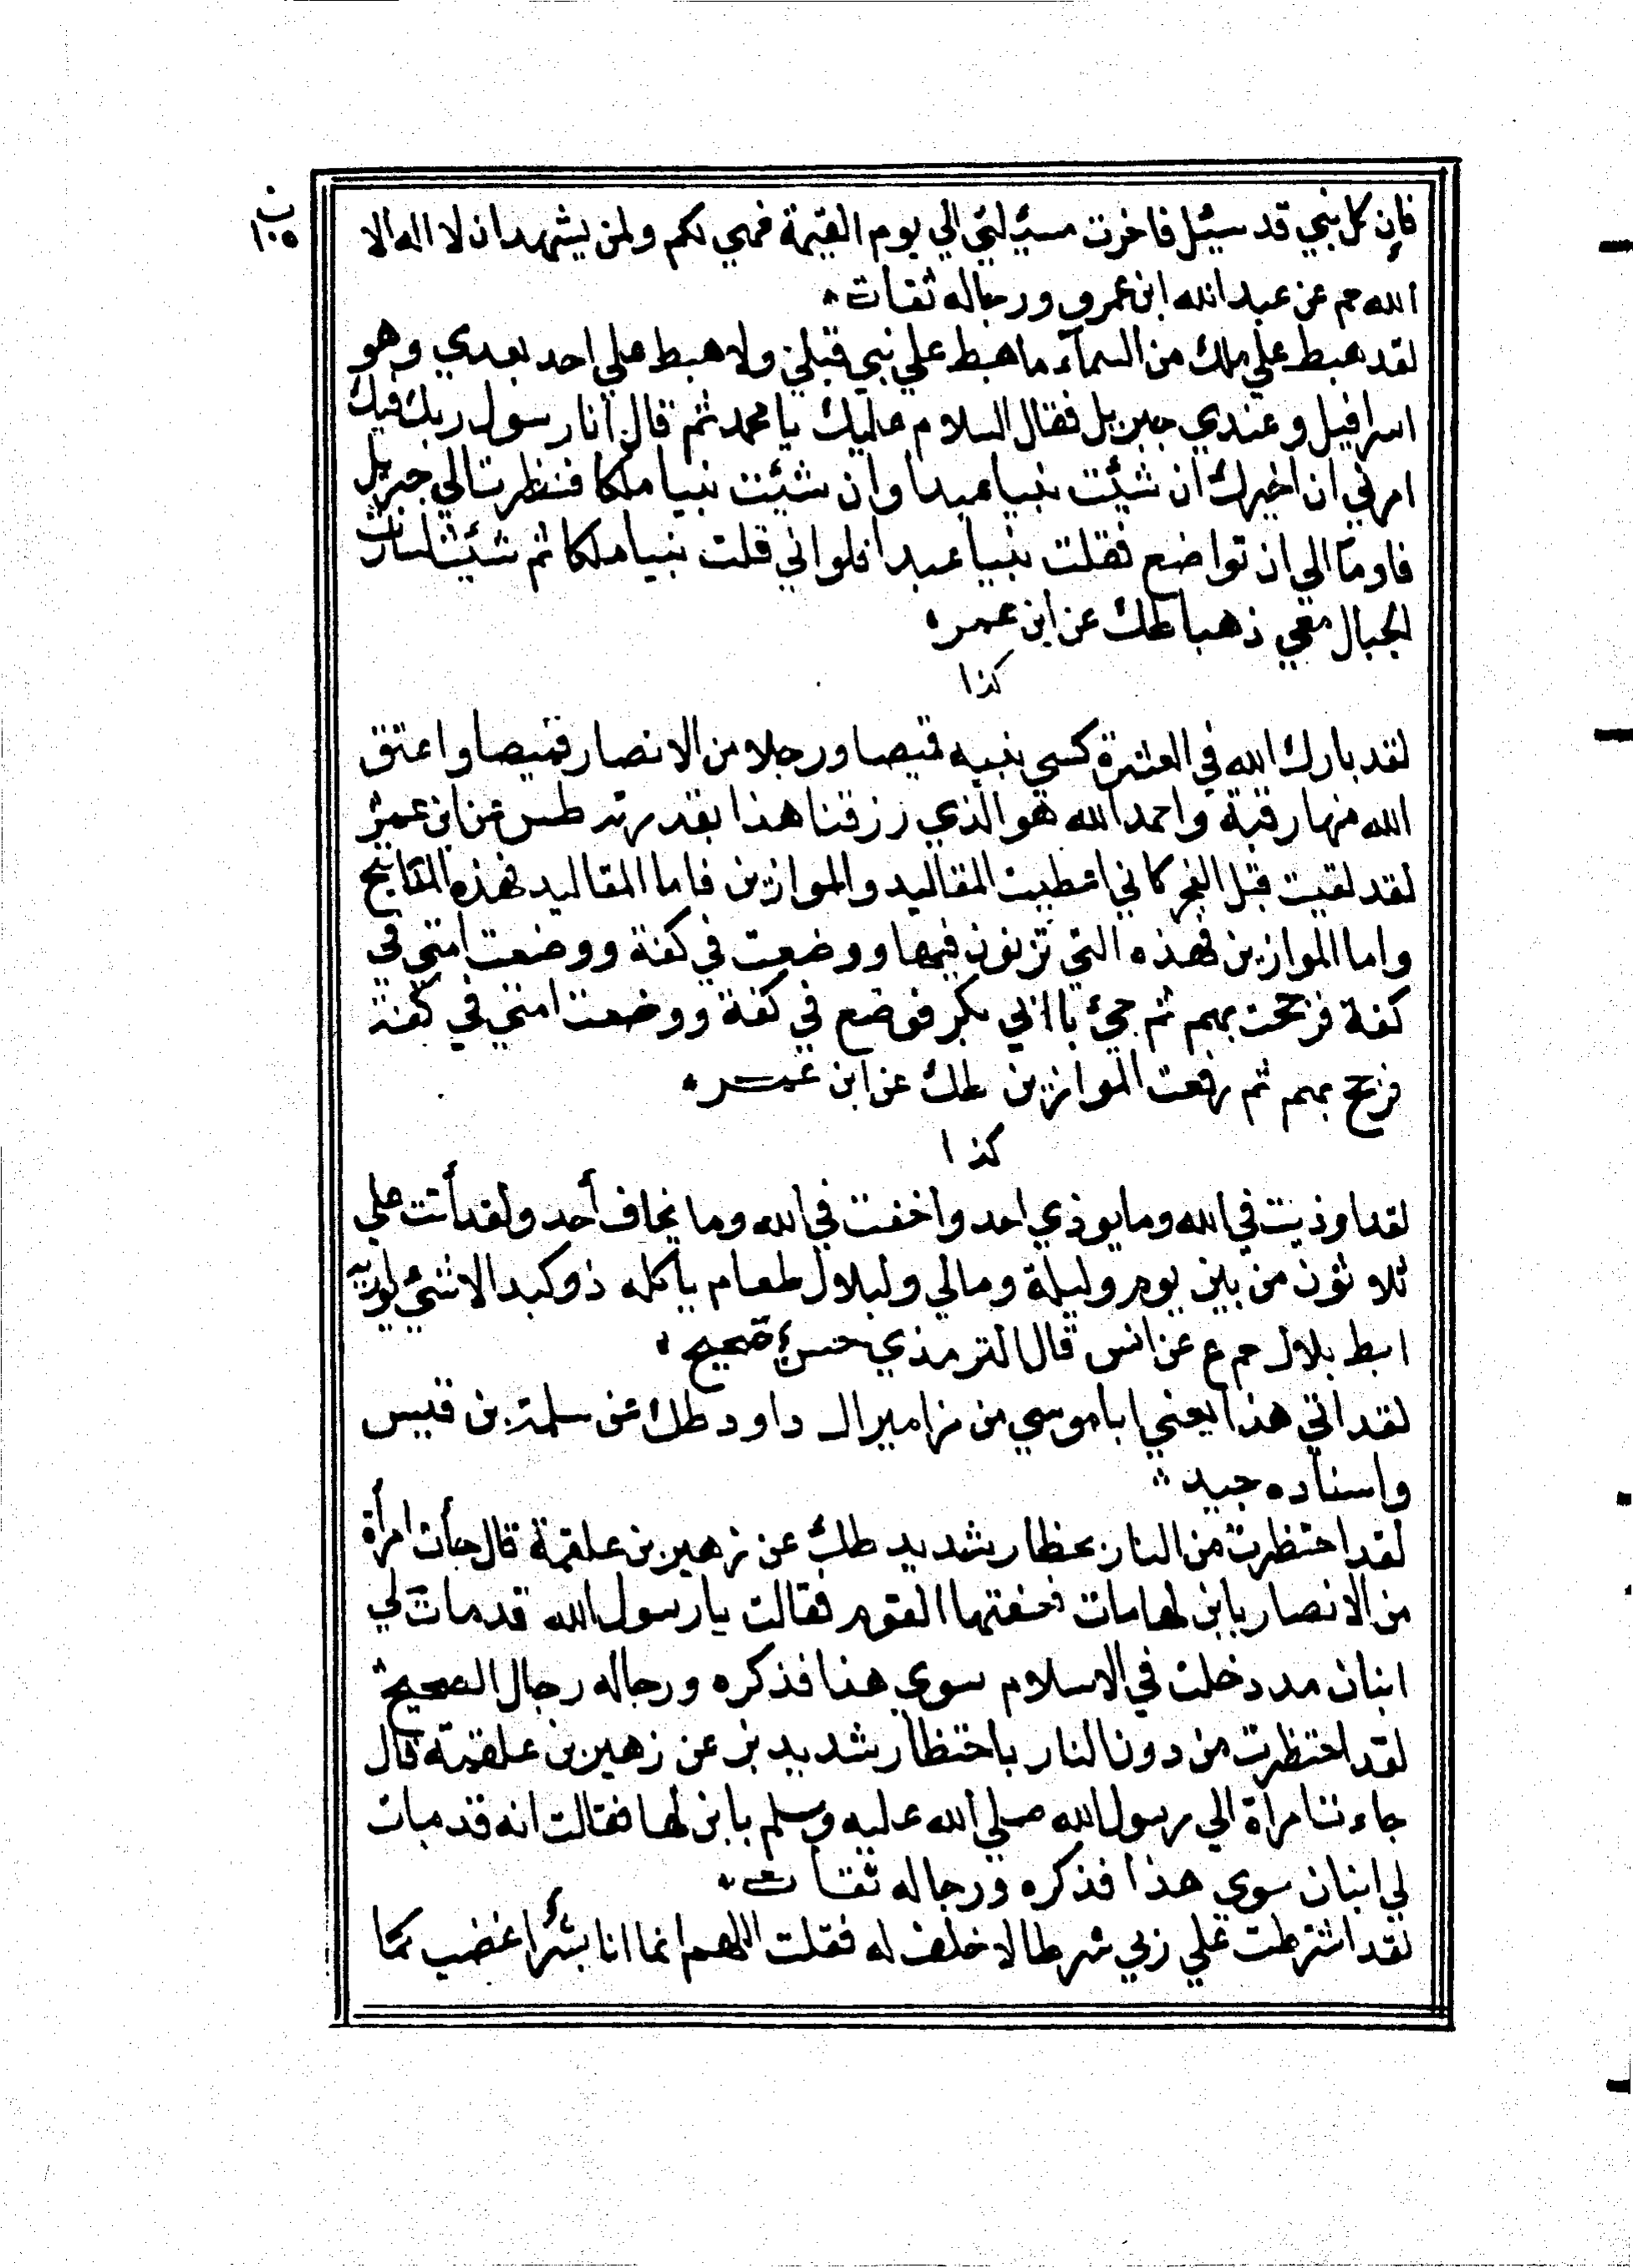 فان كل نبي قد سيئل فاخرت مسيئلتي الي يوم القيمة فهي لكم ولمن يشهد ان لا اله الا
الله حم عن عبد الله ابن عمرو ورجاله ثقات
لقد هبط علي ملك من السمآء ما هبط علي نبي قبلي ولا هبط علي احد بعدي وهو
اسرافيل وعندي جبريل فقال السلام عليك يا محمد ثم قال انا رسول ربك فيك
امرني ان اخيرك ان شئت نبيا عبدا وان شئت نبيا ملكا فنظرت الي جبريل
فاومآ الي ان تواضع فقلت نبيا عبدا فلو اني قلت نبيا ملكا ثم شئت لسارت
الجبال معي ذهبا طك عن ابن عمر
كذا
لقد بارك الله في العشرة كسي نبيه قميصا ورجلا من الانصار قميصا واعتق
الله منها رقبة واحمد الله هو الذي رزقنا هذا بقدرته طس عن ابن عمر
لقد لقيت قبل الفجر كاني اعطيت المقاليد والموازين فاما المقاليد فهذه المفاتيح
واما الموازين فهذه التي تزنون فيها ووضعت في كفة ووضعت امتي في
كفة فرجحت بهم ثم جئ باابي بكر فوضع في كفة ووضعت امتي في كفة
فرجح بهم ثم رفعت الموازين طك عن ابن عمر
كذا
لقد اوذيت في الله وما يوذي احد واخفت في الله وما يخاف أحد ولقد أتت علي
ثلاثون من بين يوم وليلة ومالي ولبلال طعام ياكله ذو كبد الا شئ يواريه
ابط بلال حم ع عن انس قال الترمذي حسن صحيح
لقد اتي هذا يعني ابا موسي من مزامير ال داود طك عن سلمة بن قيس
واسناده جيد
لقد احتظرت من النار بحظار شديد طك عن زهير بن علقمة قال جأت امرأة
من الانصار بابن لها مات فعنفتها القوم فقالت يا رسول الله قد مات لي
ابنان مد دخلت في الاسلام سوي هذا فذكره ورجاله رجال الصحيح
لقد احتظرت من دون النار باحتظار شديد بز عن زهير بن علقمة قال
جاءت امرأة الي رسول الله صلي الله عليه وسلم بابن لها فقالت انه قد مات
لي ابنان سوي هذا فذكره ورجاله ثقات
لقد اشترطت علي ربي شرطا لا خلف له فقلت اللهم انما انا بشر اغضب كما